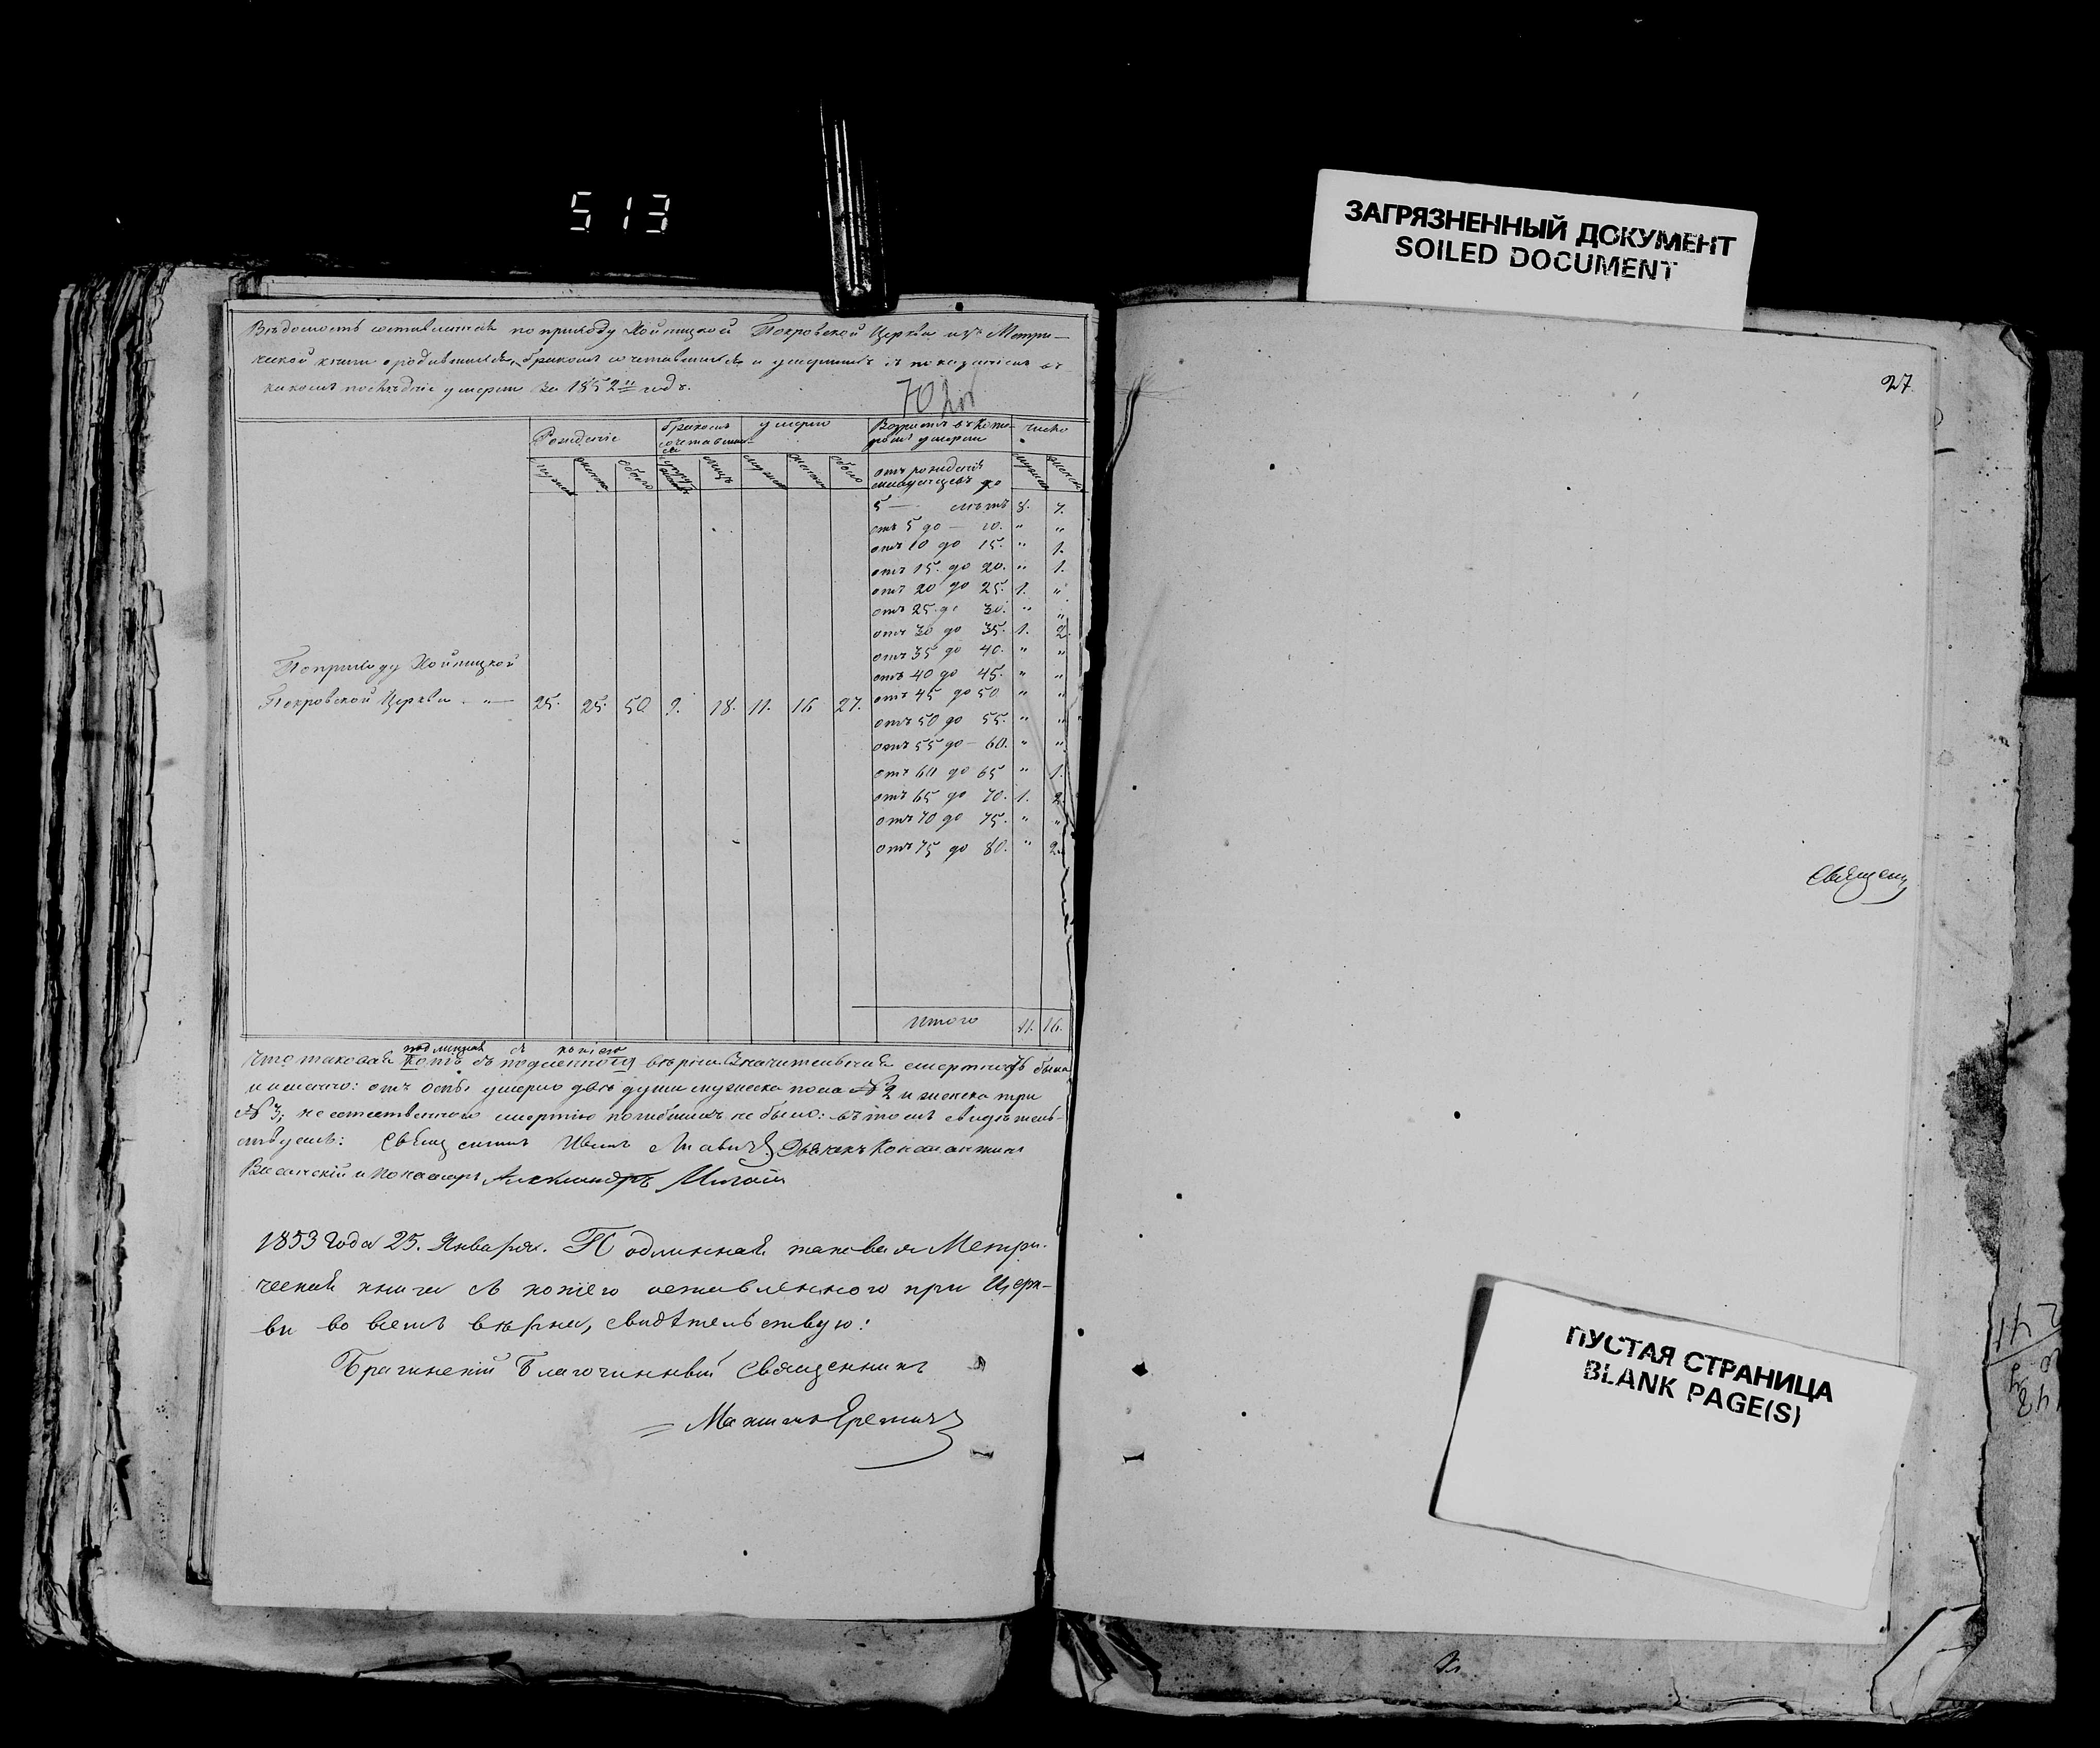 513
ЗАГРЯЗНЕННЫЙ ДОКУМЕНТ
SOILED DOCUMENT
Вѣдомость составленная по приходу Хойницкой Покровской Церкви изъ Метри-
ческой книги о родившихся, бракомъ сочетавшихся и умершихъ съ показаніемъ въ
какомъ послѣдніе умерли за 1852й годъ.
702
Рожденіе бракомъ сочетавши- умерло Возрастъ въ кото- число
ся ромъ умерли
мужеска женска обоего лицъ мужеска женска обоего отъ рожденія мужска женска
младенцевъ до
5 — лѣтъ 8. 7.
отъ 5 до — 10. " "
отъ 10 до 15. " 1.
отъ 15. до 20. " 1.
отъ 20 до 25. 1. "
отъ 25. до 30. " "
отъ 30 до 35. 1. 2.
отъ 35 до 40. " "
отъ 40 до 45. " "
отъ 45 до 50 " "
отъ 50 до 55. " "
отъ 55 до — 60. " "
отъ 60 до 65 " 1.
отъ 65 до 70. 1. 2.
отъ 70 до 75. " "
отъ 75 до 80. " 2.
По приходу Хойницкой
Покровской Церкви . " — 25. 25. 50 9. 18. 11. 16 27.
Итого 11. 16.
подлинная съ копіею
Что таковая Копія съ подленною вѣрна. Значительная смертность была
и именно: отъ оспы умерло двѣ души мужеска пола № 2 и женска три
№ 3; не естественною смертію погибшихъ не было: въ томъ свидѣтель-
ствуемъ: Священникъ Иванъ Дьячекъ Константинъ
и Пономарь Александръ
1853 года 25. Января. Подлинная таковая Метри-
ческая книга съ копіею оставленною при Церк-
ви во всемъ вѣрна, свидѣтельствую:
Брагинскій Благочинный Священникъ
Максимъ Еремичъ
27.
Священ
ПУСТАЯ СТРАНИЦА
BLANK PAGE(S)